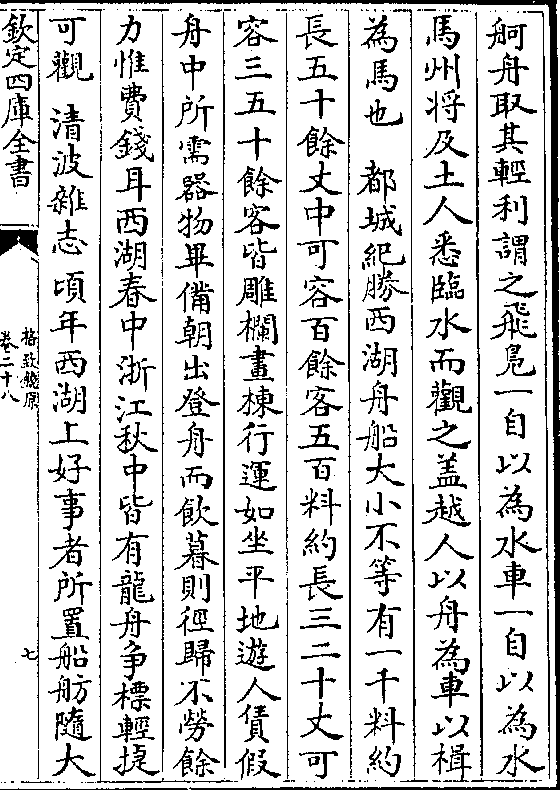 舸舟取其輕利謂之飛鳧一自以為水車一自以為水
馬州将及土人悉臨水而觀之盖越人以舟為車以楫
為馬也　都城紀勝西湖舟船大小不等有一千料約
長五十餘丈中可容百餘客五百料約長三二十丈可
容三五十餘客皆雕欄畫棟行運如坐平地遊人賃假
舟中所需器物畢備朝出登舟而飲暮則徑歸不勞餘
力惟費錢耳西湖春中浙江秋中皆有龍舟争標輕捷
可觀　清波雜志頃年西湖上好事者所置船舫隨大
欽定四庫全書
格致鏡原
卷二十八
七